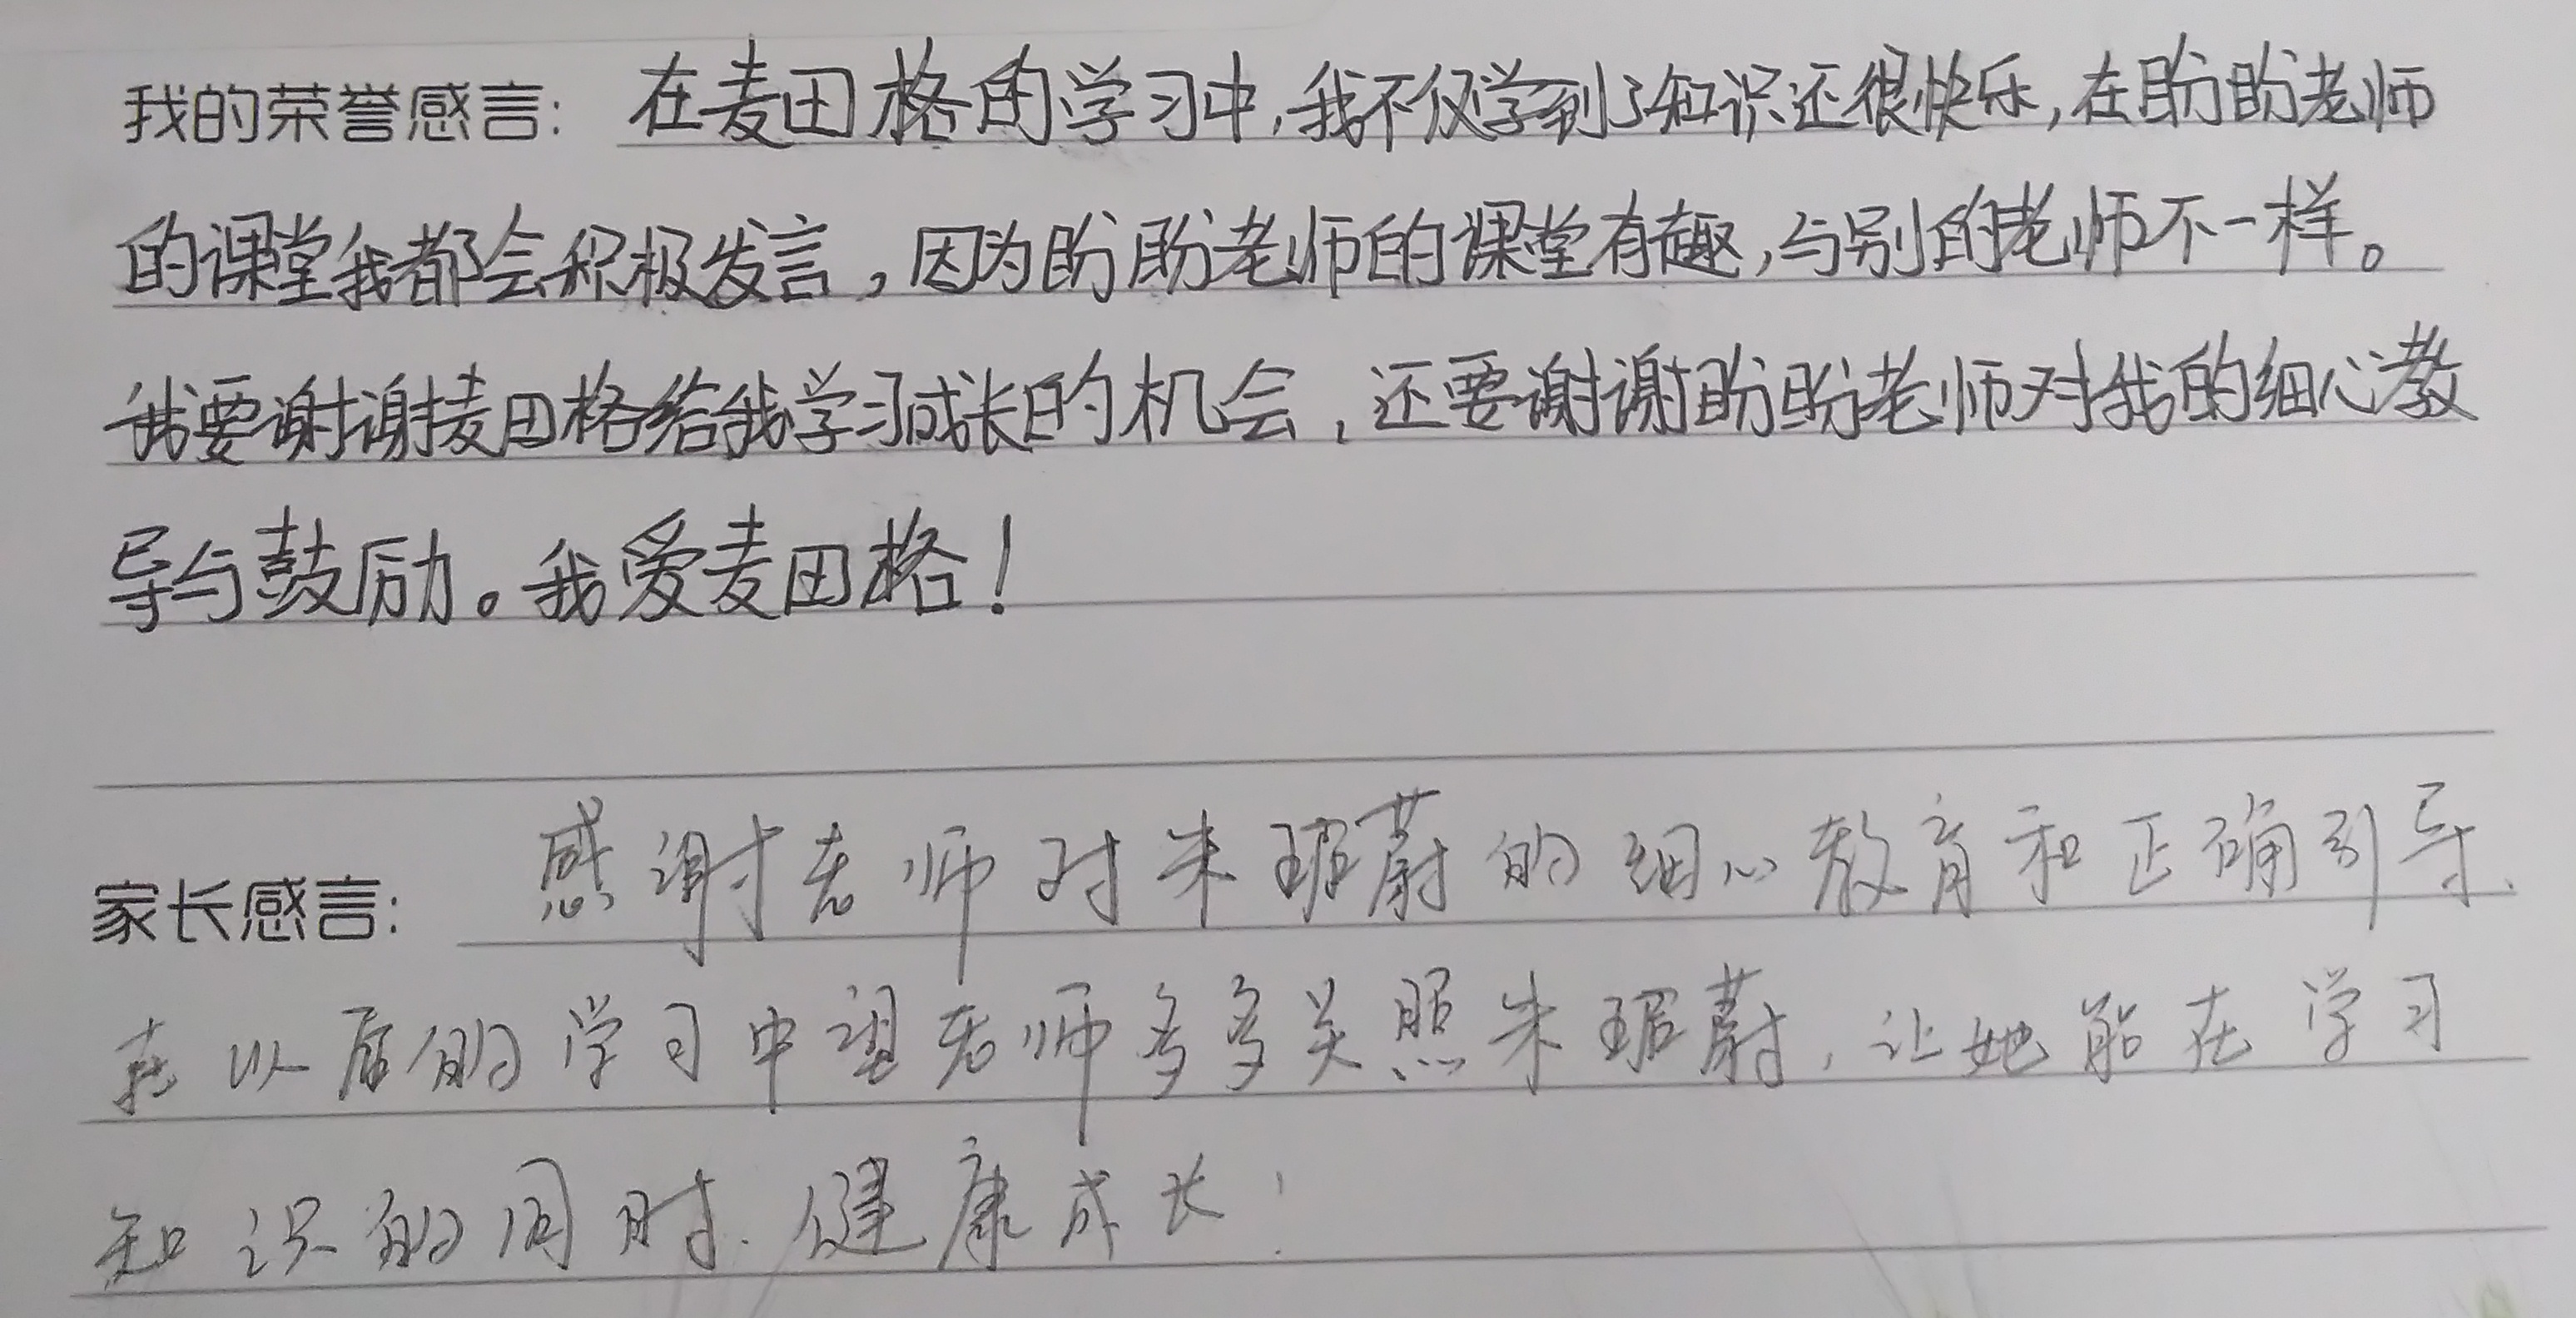 我的荣誉感言：在麦田格的学习中，我不仅学到了知识还很快乐，在盼盼老师
的课堂我都会积极发言，因为盼盼老师的课堂有趣，与别的老师不一样。
我要谢谢麦田格给我学习成长的机会，还要谢谢盼盼老师对我的细心教
导与鼓励。我爱麦田格！
家长感言：感谢老师对朱琚蔚的细心教育和正确引导.
在以后的学习中望老师多多关照朱琚蔚，让她能在学习
知识的同时.健康成长！